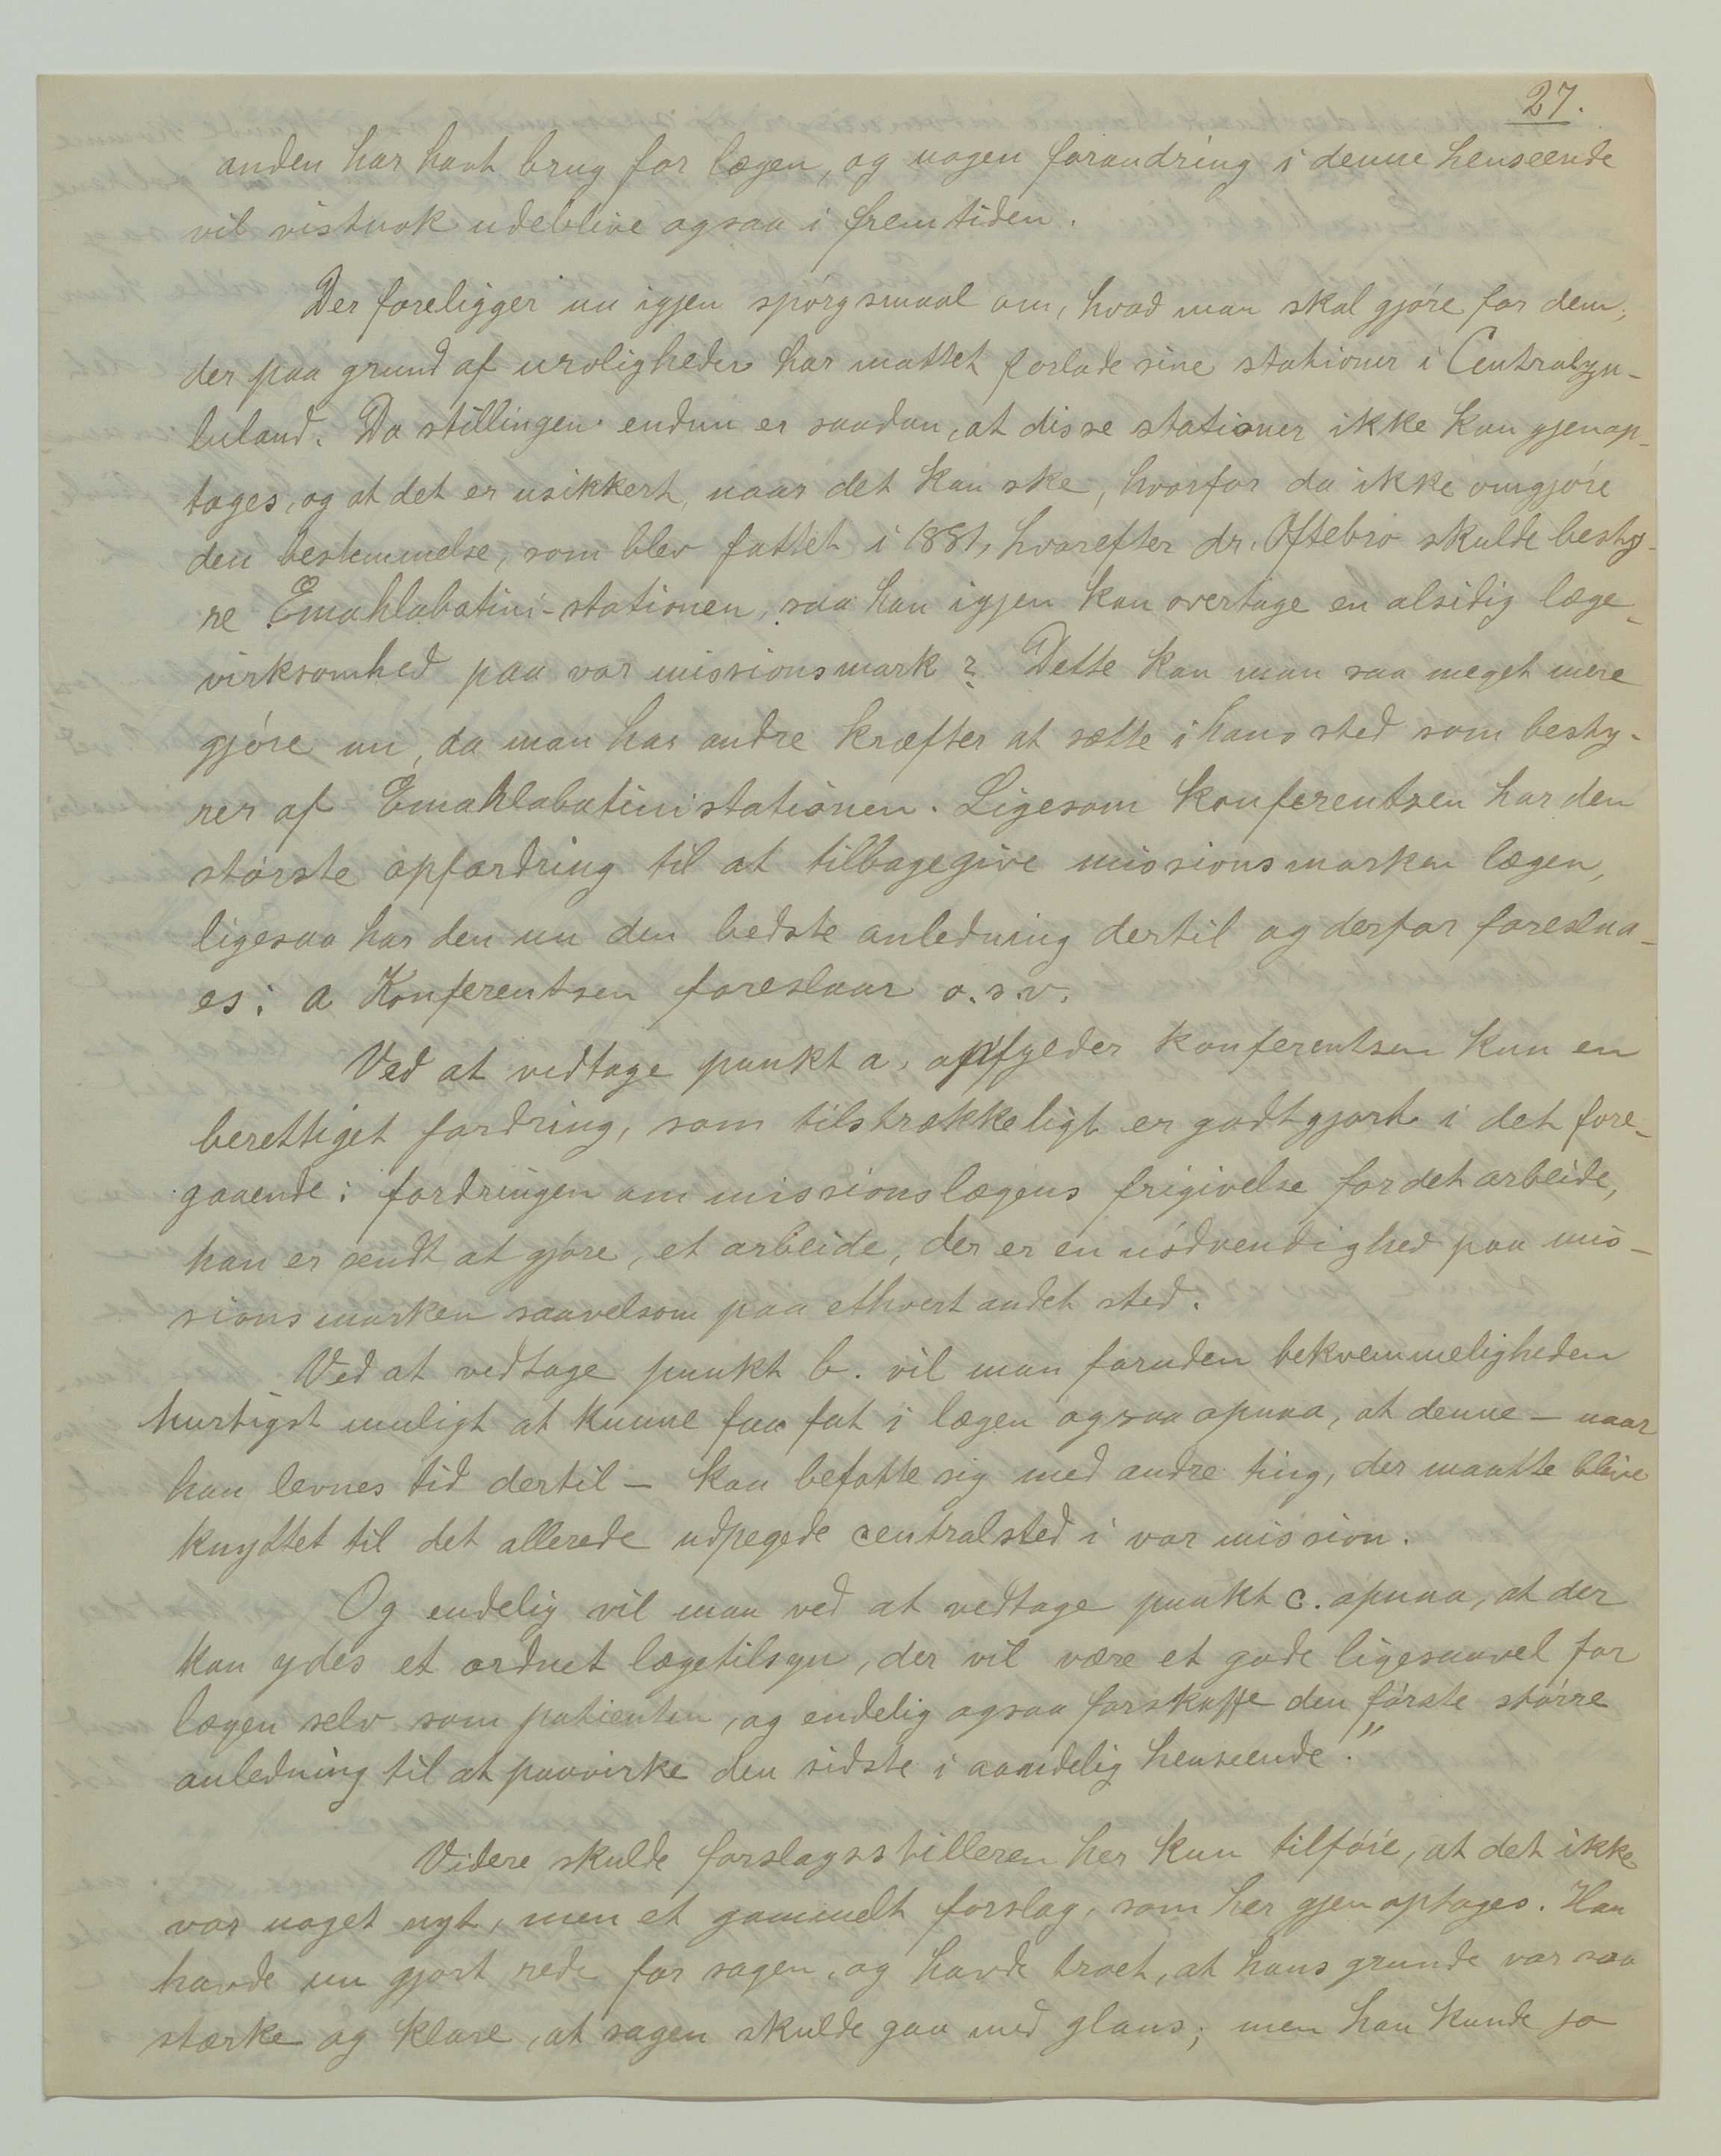 27.
anden har havt brug for lægen, og nogen forandring i denne henseende
vil vistnok udeblive ogsaa i fremtiden.
Der foreligger nu igjen spörgsmaal om, hvad man skal gjöre for dem,
der paa grund af uroligheder har maattet forlade sine stationer i Centralzu-
luland. Da stillingen endnu er saadan, at disse stationer ikke kan gjenop-
tages, og at det er usikkert, naar det kan ske, hvorfor da ikke omgjöre
den bestemmelse, som blev fattet i 1881, hvorefter dr. Oftebro skulde besty-
re Emahlabatini-stationen, saa han igjen kan overtage en alsidig læge-
virksomhed paa vor missionsmark? Dette kan man saa meget mere
gjöre nu, da man har andre kræfter at sætte i hans sted som besty-
rer af Emahlabatinistationen. Ligesom Konferentsen har den
störste opfordring til at tilbagegive missionsmarken lægen,
ligesaa har den nu den bedste anledning dertil og derfor foreslaa-
es: a Konferentsen foreslaar o.s.v.
Ved at vedtage punkt a, opfylder konferentsen kun en
berettiget fordring, som tilstrækkeligt er godtgjort i det fore-
gaaende: fordringen om missionslægens frigivelse for det arbeide,
han er sendt at gjöre, et arbeide, der er en nödvendighed paa mis-
sionsmarken saavelsom paa ethvert andet sted.
Ved at vedtage punkt b. vil man foruden bekvemmeligheden
hurtigst muligt at kunne faa fat i lægen ogsaa opnaa, at denne – naar
han levnes tid dertil – kan befatte sig med andre ting, der maatte blive
knyttet til det allerede udpegede centralsted i vor mission.
Og endelig vil man ved at vedtage punkt c. opnaa, at der
kan ydes et ordnet lægetilsyn, der vil være et gode ligesaavel for
lægen selv som patienten, og endelig ogsaa forskaffe den förste större
anledning til at paavirke den sidste i aandelig henseende."
Videre skulde forslagsstilleren her kun tilföie, at det ikke
var noget nyt, men et gammelt forslag, som her gjenoptages. Han
havde nu gjort rede for sagen, og havde troet, at hans grunde var saa
stærke og klare, at sagen skulde gaa med glans; men han kunde jo